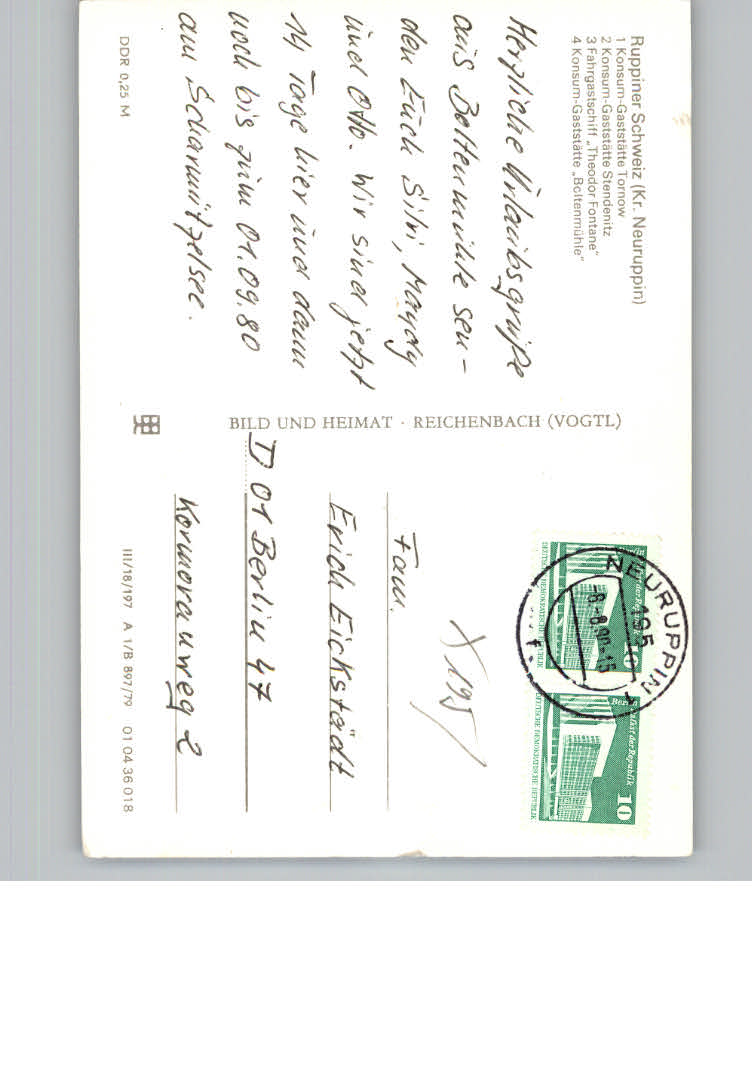 Ruppiner Schweiz (Kr. Neuruppin)
1 Konsum-Gaststätte Tornow
2 Konsum-Gaststätte Stendenitz
3 Fahrgastschiff „Theodor Fontane“
4 Konsum-Gaststätte „Boltenmühle“
Herzliche Urlaubsgrüße
aus Boltenmühle sen-
den Euch Silvi, Mandy
und Otto. Wir sind jetzt
14 Tage hier und dann
noch bis zum 01.09.80
am Scharmützelsee.
DDR 0,25 M
BILD UND HEIMAT · REICHENBACH (VOGTL)
NEURUPPIN 1
195
-8.-8.90-15
f
Berlin-Palast der Republik
10
DEUTSCHE DEMOKRATISCHE REPUBLIK
Berlin-Palast der Republik
10
DEUTSCHE DEMOKRATISCHE REPUBLIK
X 195
Fam.
Erich Eichstädt
D 01 Berlin 47
Kormoranweg 2
III/18/197 A 1/B 897/79 01 04 36 018